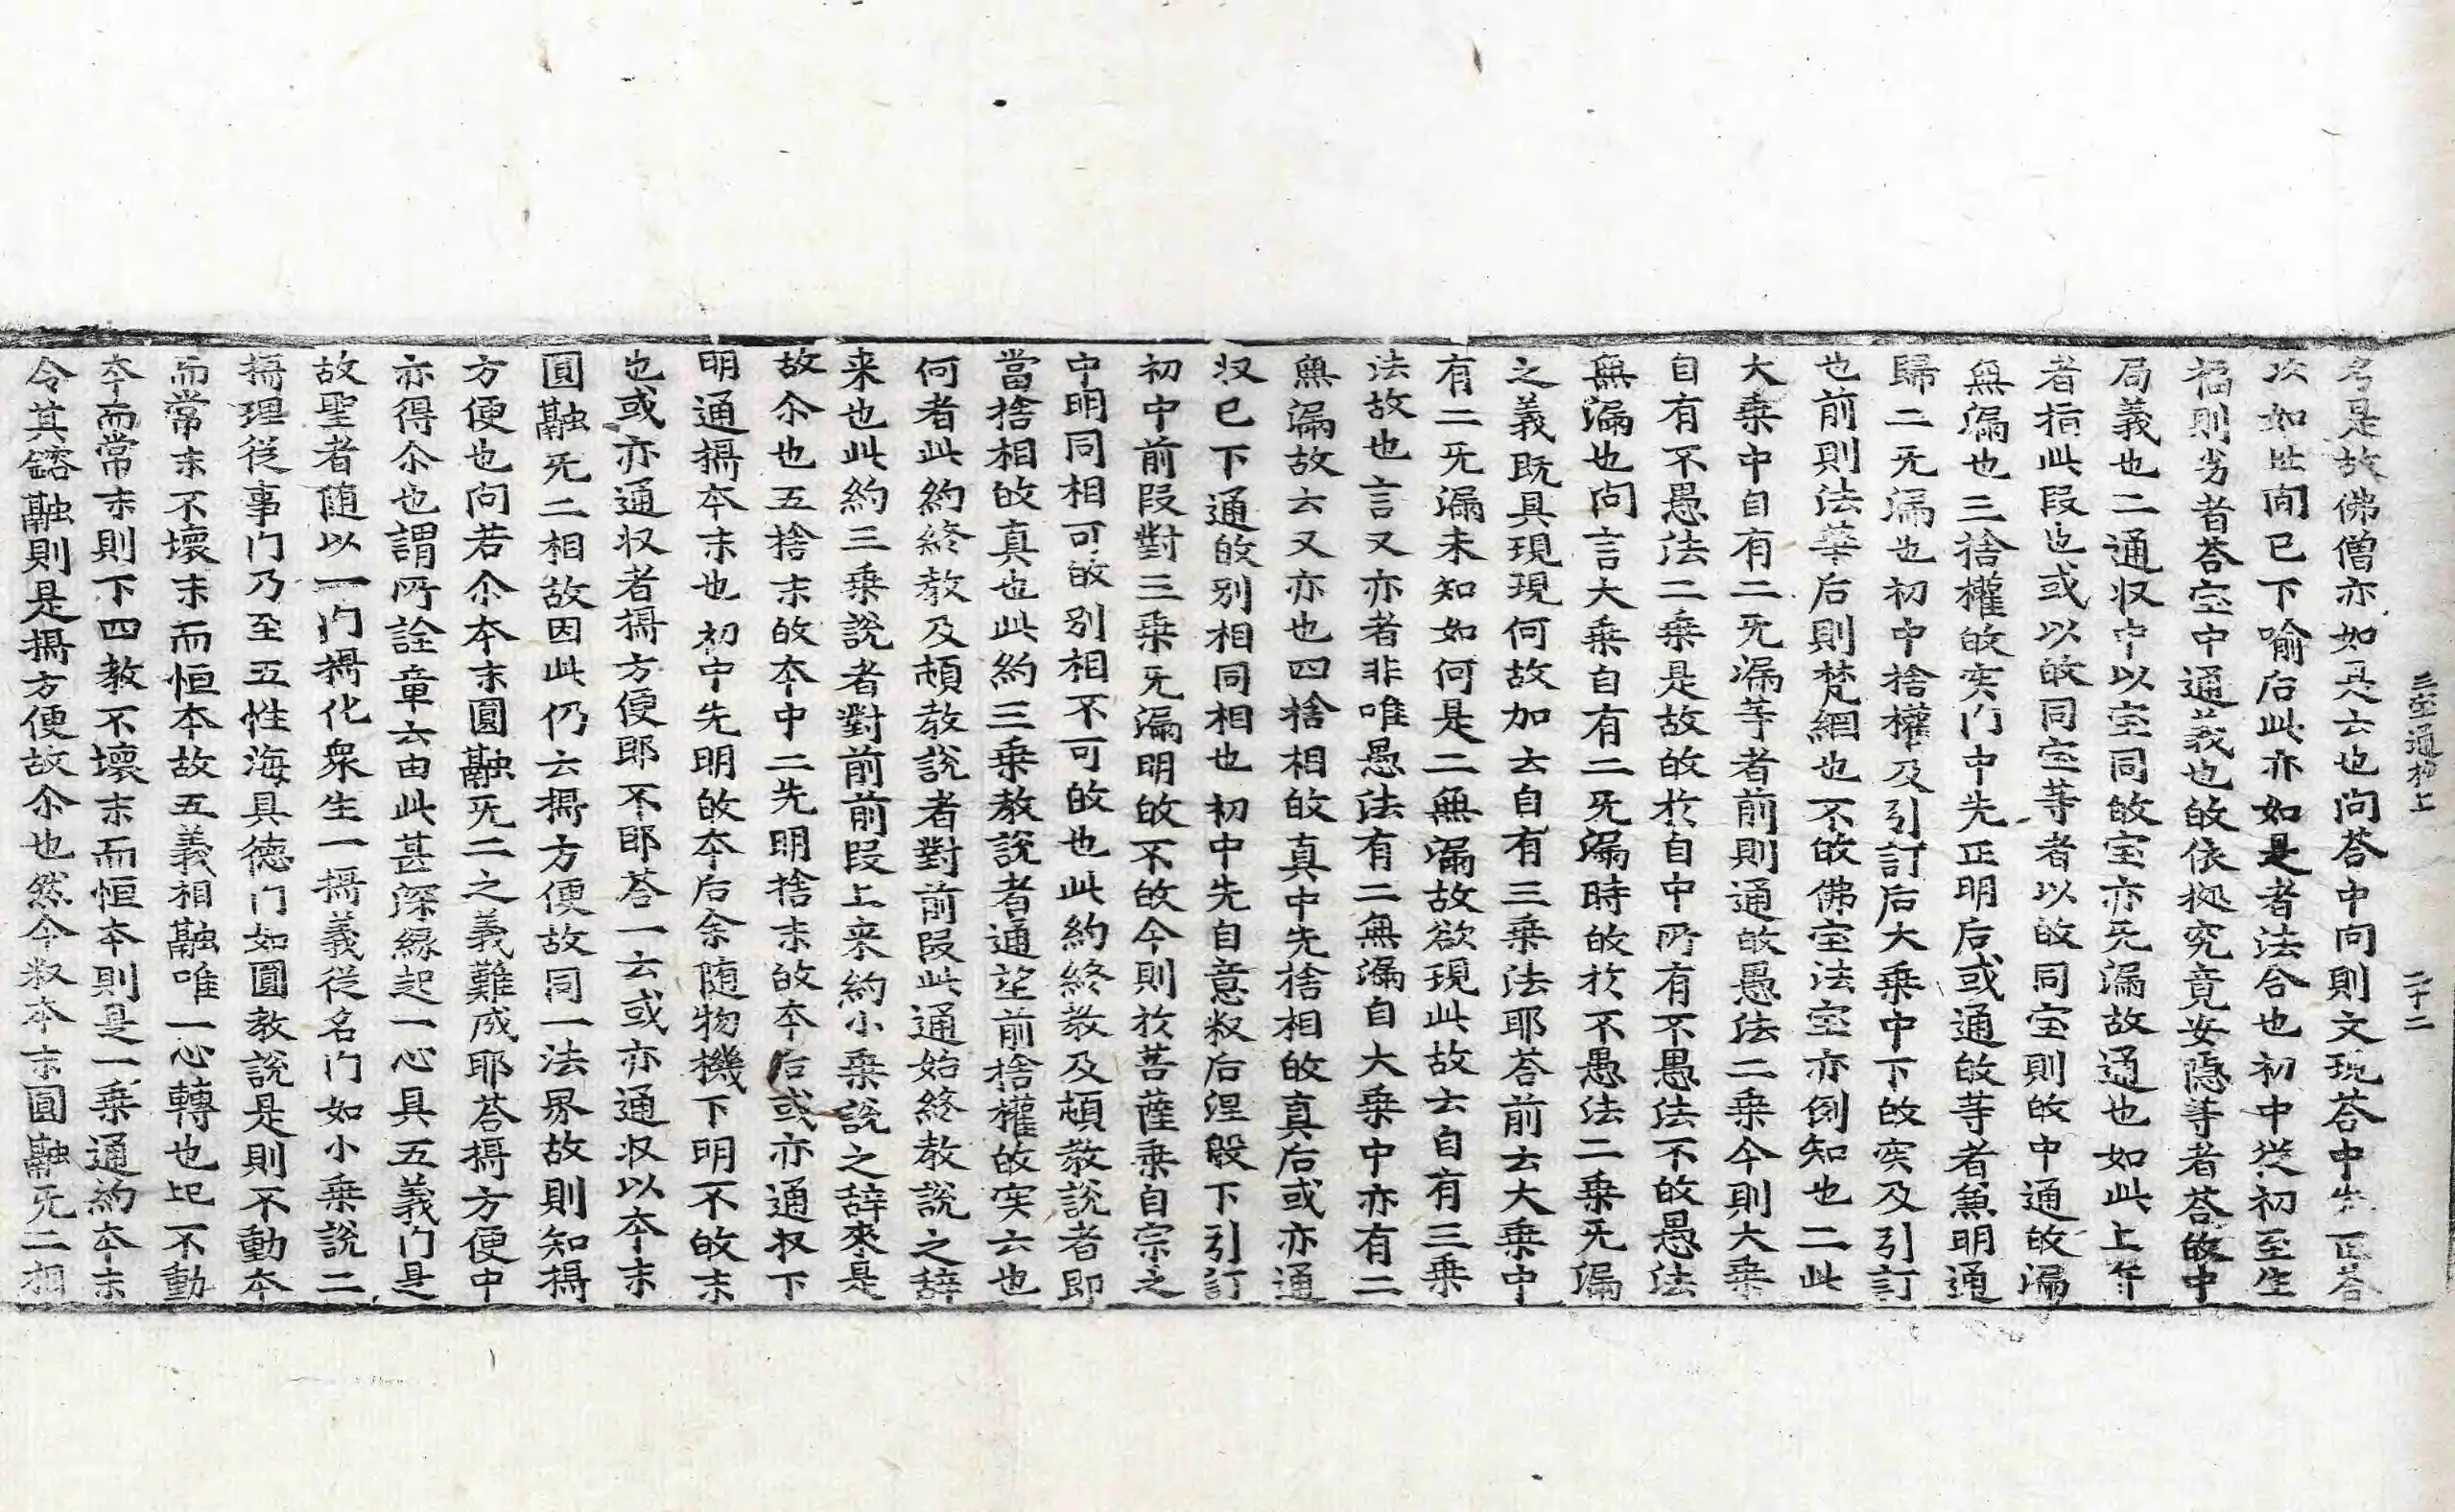 三宝通抄上 二十二
名是故佛僧亦如是去也问荅中问則文玩荅中先正荅
次如此间已下喻后此亦如是者法合也初中從初至生
福則劣者荅宝中通義也故依拠究竟安隐等者荅故中
局義也二通収中以宝同故宝亦旡漏故通也如此上午
者指此段也或以故同宝等者以故同宝則故中通故漏
無漏也三捨權故宲门中先正明后或通故等者兼明通
歸二旡漏也初中捨權及引訂后大乗中下故宲及引訂
也前則法華后則梵網也不故佛宝法宝亦例知也二此
大乗中自有二旡漏等者前則通故愚法二乗今則大乗
自有不愚法二乗是故故扵自中所有不愚法不故愚法
無漏也问言大乗自有二旡漏時故扵不愚法二乗旡漏
之義既具現現何故加去自有三乗法耶荅前去大乗中
有二旡漏未知如何是二無漏故欲現此故去自有三乗
法故也言又亦者非唯愚法有二無漏自大乗中亦有二
無漏故去又亦也四捨相故真中先捨相故真后或亦通
収已下通故别相同相也初中先自意叙后涅般下引訂
初中前段對三乗旡漏明故不故今則扵菩薩乗自宗之
中明同相可故别相不可故也此約終教及頓教說者即
當捨相故真也此約三乗教說者通望前捨權故宲六也
何者此約終教及頓教說者對前段此通始終教說之辞
来也此約三乗說者對前前段上来約小乗說之辞來是
故尒也五捨末故夲中二先明捨末故夲后或亦通収下
明通攝夲末也初中先明故夲后余随物機下明不故末
也或亦通収者攝方便耶不耶荅一云或亦通収以夲末
圓融旡二相故因此仍云攝方便故同一法界故則知攝
方便也问若尒夲末圓融旡二之義難成耶荅攝方便中
亦得尒也謂所詮章云由此甚深縁起一心具五義门是
故聖者随以一门攝化衆生一攝義從名门如小乗說二
攝理從事门乃至五性海具徳门如圓教說是則不動本
而常末不壞末而恒本故五義相融唯一心轉也圯不動
夲而常末則下四教不壞末而恒本則是一乗通約本末
令其鎔融則是攝方便故尒也然今叙本末圓融旡二相